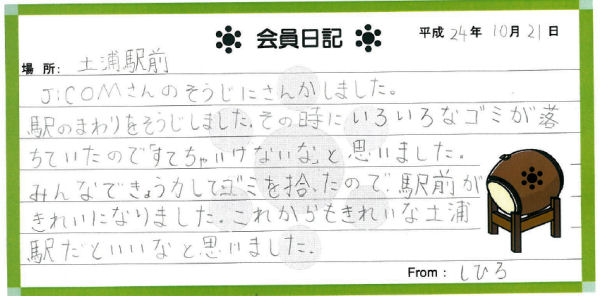 会員日記
平成24年10月21日
場所: 土浦駅前
J:COMさんのそうじにさんかしました。
駅のまわりをそうじしました。その時にいろいろなゴミが落
ちていたので「すてちゃいけないな」と思いました。
みんなできょう力してゴミを拾ったので、駅前が
きれいになりました。これからもきれいな土浦
駅だといいなと思いました。
From: しひろ